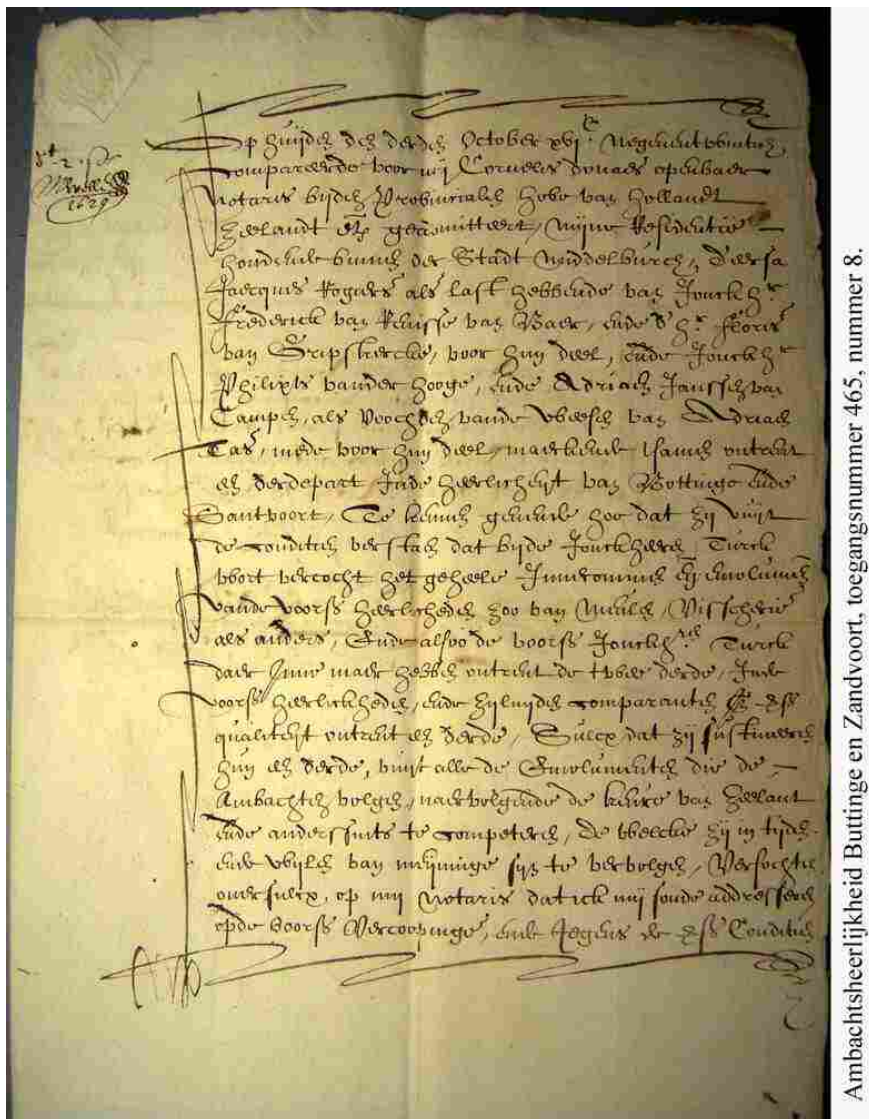 1629
Op huijden den derden October xvi^c negenentwintich
Compareerde voor mij Cornelis donaes openbaer
Notaris bijden Provincialen hove van Hollandt
Zeelandt etc. geadmitteert, mijne Residentie
houdende binnen der Stadt Middelburch, d'eersa
Jacques Rogiers als last hebbende van Jonckh^r
Frederick van Renisse van Baer, ende d'h^r Floris
van Gripskercke, voor hun deel, ende Jonckh^r
Philips vander Hooge, ende Adriaen Janssen van
Campen, als Voochden vande weesen van Adriaen
Tas, mede voor hun deel, maeckende tsamen ontrent
een derdepart Inde heerlicheyt van Bottinge ende
Santvoort, Te kennen gevende hoe dat zij vuijt
de Conditien verstaen dat bijde Jonckheeren Turck
wort vercocht het geheele Innecommen en emolumen
vande voorss heerlicheden zoo van Meulen, Visscherie
als anders, Ende alsoo de voorss Jonckh^ren Turck
daer Inne maer hebben ontrent de twee derde, Inde
voorss heerlickheden, ende zijlieden Comparanten
qualiteyt ontrent een derde, Sulcx dat zij sustineeren
hun een derde, vuijt alle de Emolumenten die de
Ambachten volgen, naervolgende de keure van Zeelant
ende anderssints te Competeren, de welcke zij in tijden
ende wijlen van meijninge sijn te vervolgen, Versochten
oversulcx, op mij Notaris dat ick mij soude addresseren
opde voorss Vercoopinge, ende Jegens de Conditien
Ambachtsheerlijkheid Buttinge en Zandvoort, toegangsnummer 465, nummer 8.